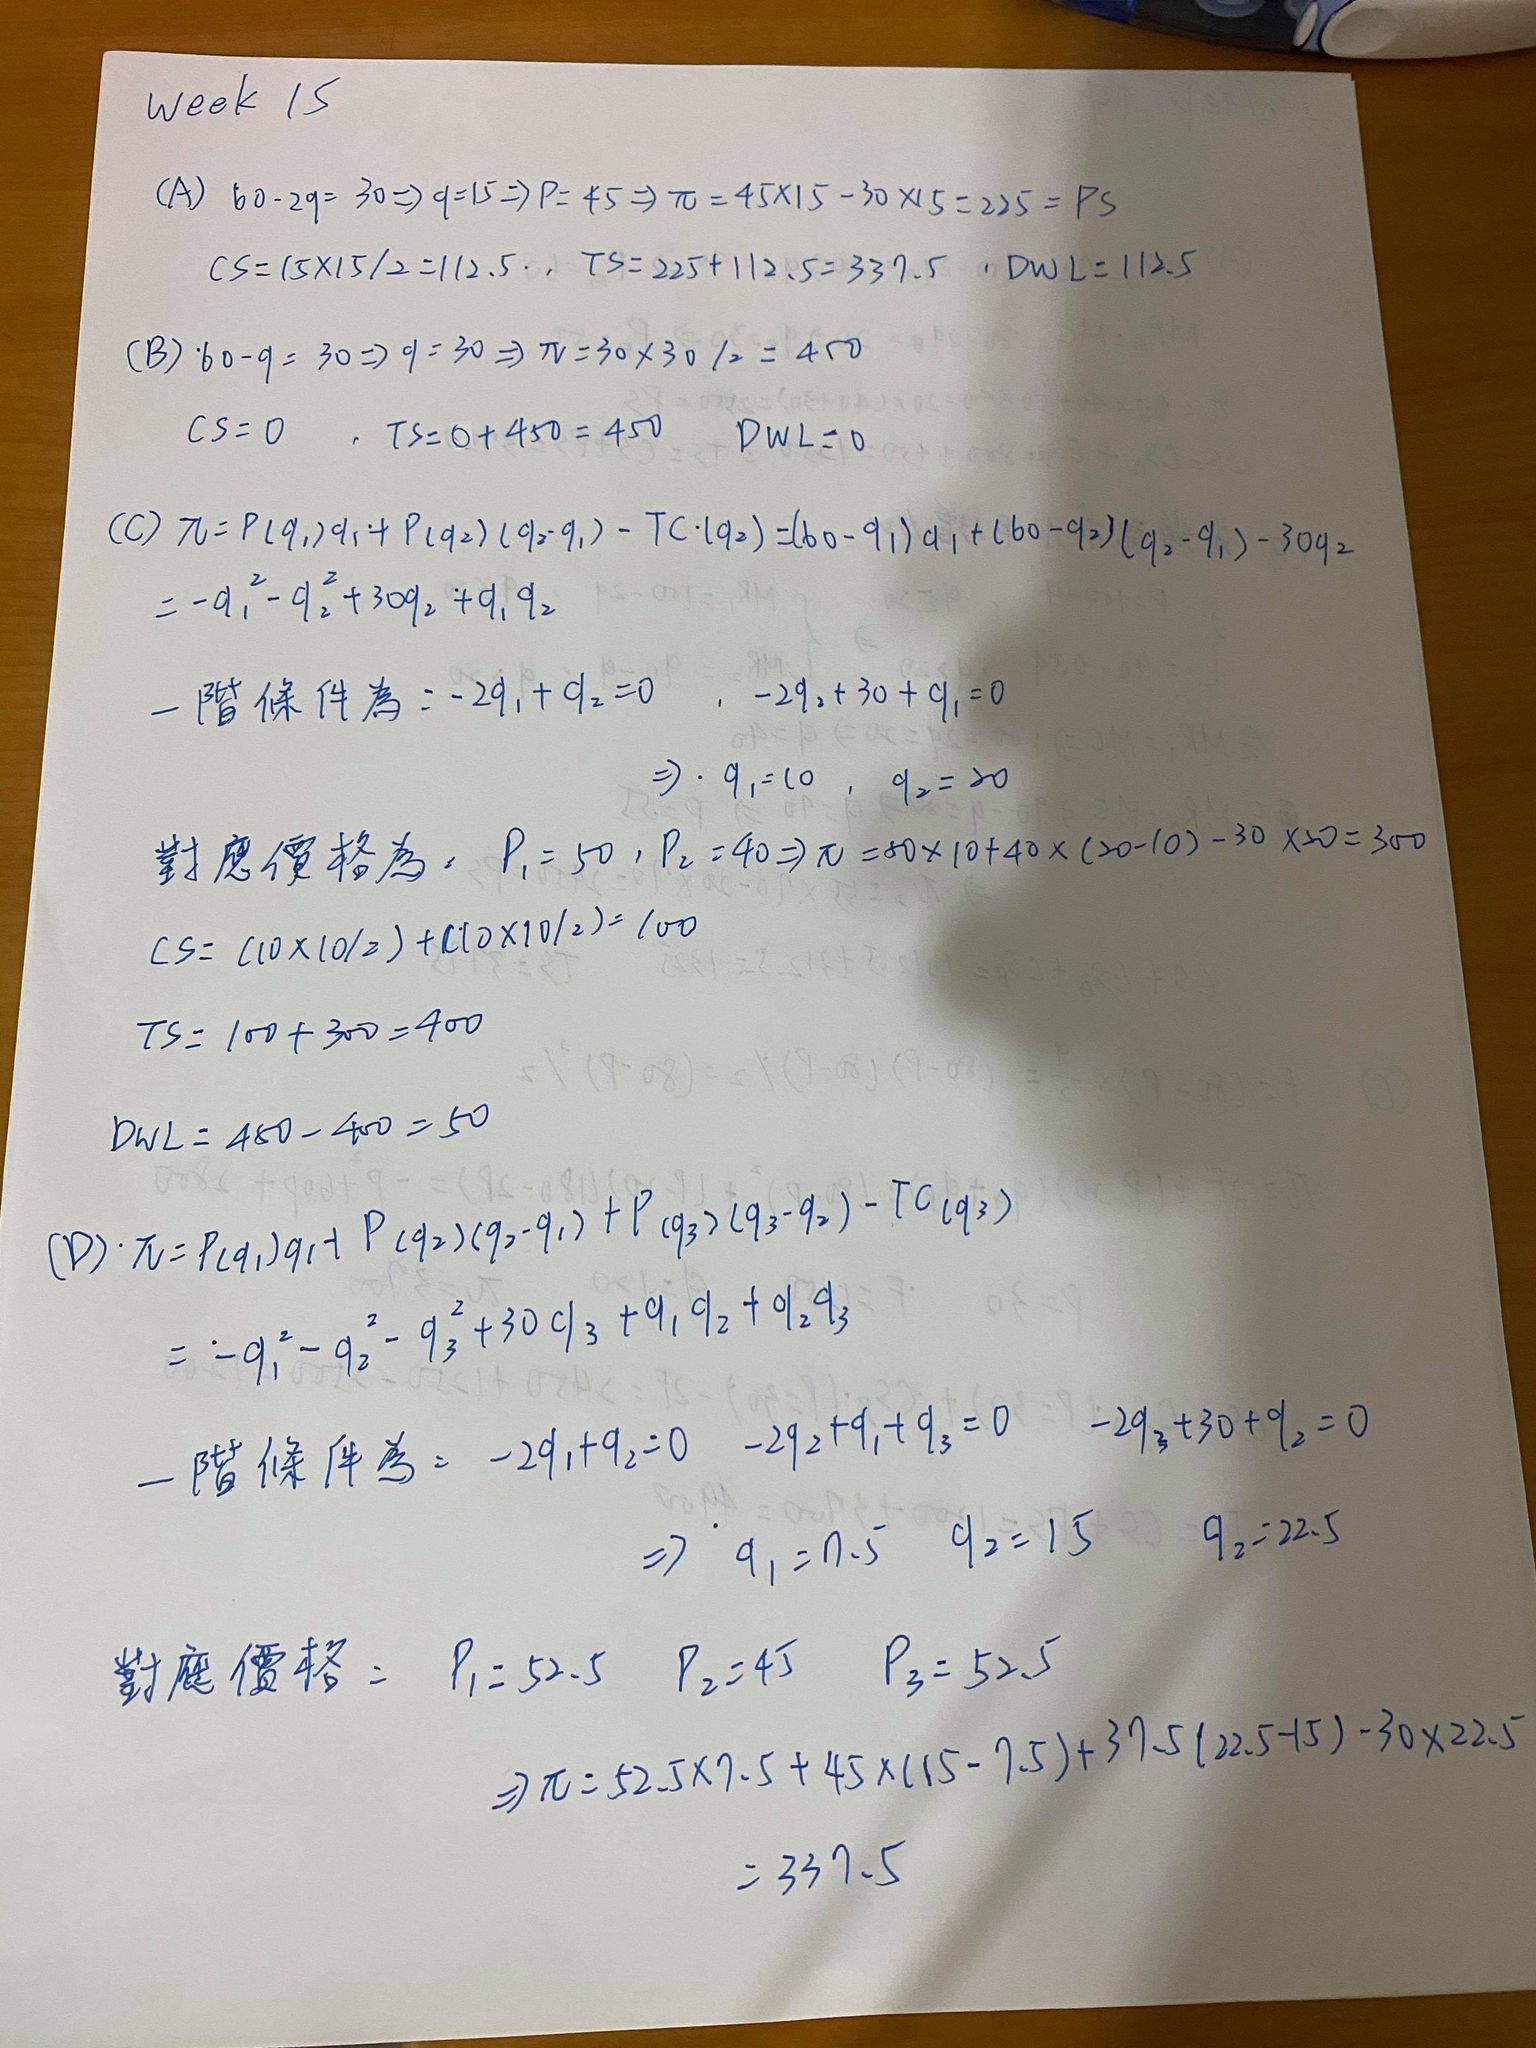 Week 15
(A) 60-2q=30⇒q=15⇒P=45⇒π=45×15-30×15=225=PS
CS=15×15/2=112.5., TS=225+112.5=337.5 , DWL=112.5
(B) 60-q=30⇒q=30⇒π=30×30/2=450
CS=0 , TS=0+450=450 DWL=0
(C) π=P(q₁)q₁+P(q₂)(q₂-q₁)-TC(q₂)=(60-q₁)q₁+(60-q₂)(q₂-q₁)-30q₂
=-q₁²-q₂²+30q₂+q₁q₂
一階條件為:-2q₁+q₂=0 , -2q₂+30+q₁=0
⇒ q₁=10 , q₂=20
對應價格為: P₁=50, P₂=40⇒π=50×10+40×(20-10)-30×20=300
CS=(10×10/2)+(10×10/2)=100
TS=100+300=400
DWL=450-400=50
(D) π=P(q₁)q₁+P(q₂)(q₂-q₁)+P(q₃)(q₃-q₂)-TC(q₃)
=-q₁²-q₂²-q₃²+30q₃+q₁q₂+q₂q₃
一階條件為: -2q₁+q₂=0 -2q₂+q₁+q₃=0 -2q₃+30+q₂=0
⇒ q₁=7.5 q₂=15 q₂=22.5
對應價格: P₁=52.5 P₂=45 P₃=52.5
⇒π=52.5×7.5+45×(15-7.5)+37.5(22.5-15)-30×22.5
=337.5